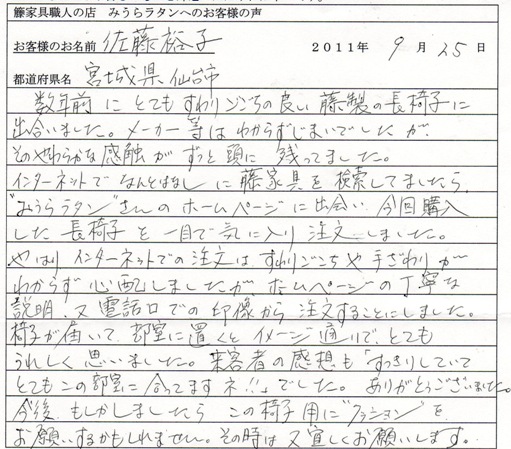 籐家具職人の店 みうらラタンへのお客様の声
お客様のお名前 佐藤裕子 2011年 9月25日
都道府県名 宮城県仙台市
数年前にとてもすわりごこちの良い藤製の長椅子に
出合いました。メーカー等はわからずじまいでしたが
そのやわらかな感触がずっと頭に残ってました。
インターネットでなんとはなしに藤家具を検索してましたら、
"みうらラタン"さんのホームページに出会い、今回購入
した長椅子を一目で気に入り注文しました。
やはりインターネットでの注文はすわりごこちや手ざわりが
わからず心配しましたが、ホームページの丁寧な
説明、又電話口での印像から注文することにしました。
椅子が届いて、部室に置くとイメージ通りで、とても
うれしく思いました。来客者の感想も「すっきりしていて
とてもこの部室に合ってますネ!!」でした。ありがとうございました。
今後、もしかしましたらこの椅子用に"クッション"を
お願いするかもしれません。その時は又宜しくお願いします。